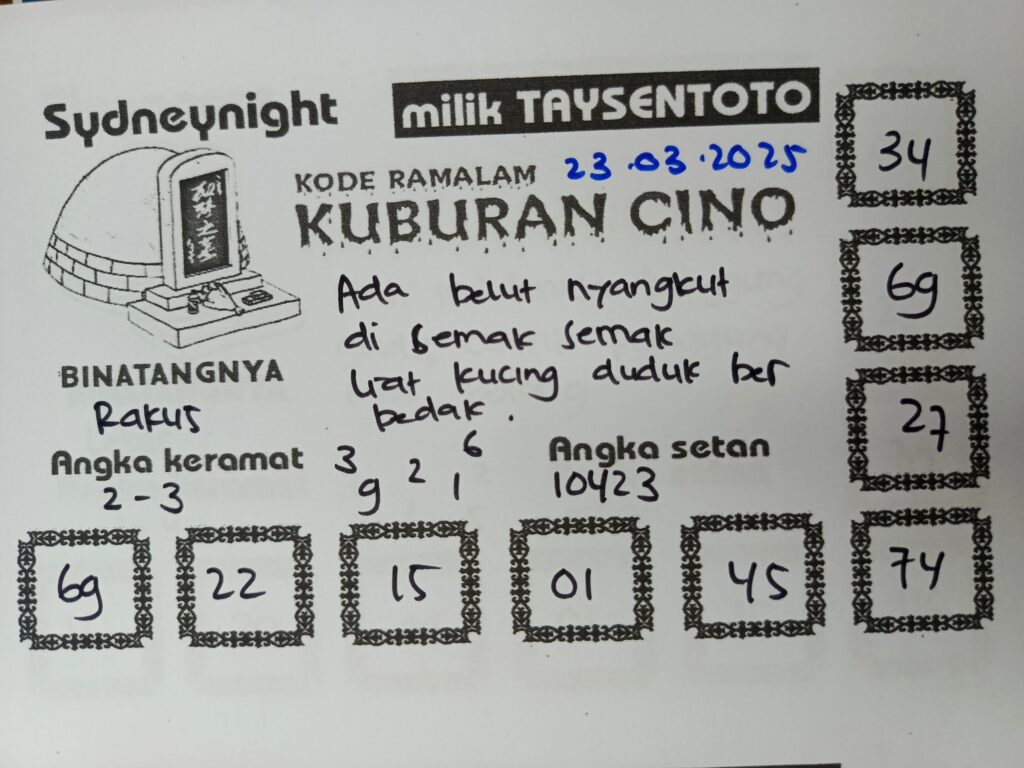 Sydneynight
milik TAYSENTOTO
KODE RAMALAM 23.03.2025
KUBURAN CINO
Ada belut nyangkut
di semak semak
liat kucing duduk ber
bedak.
BINATANGNYA
Rakus
Angka keramat
2-3
3 9 2 1 6
Angka setan
10423
34
69
27
74
69 22 15 01 45